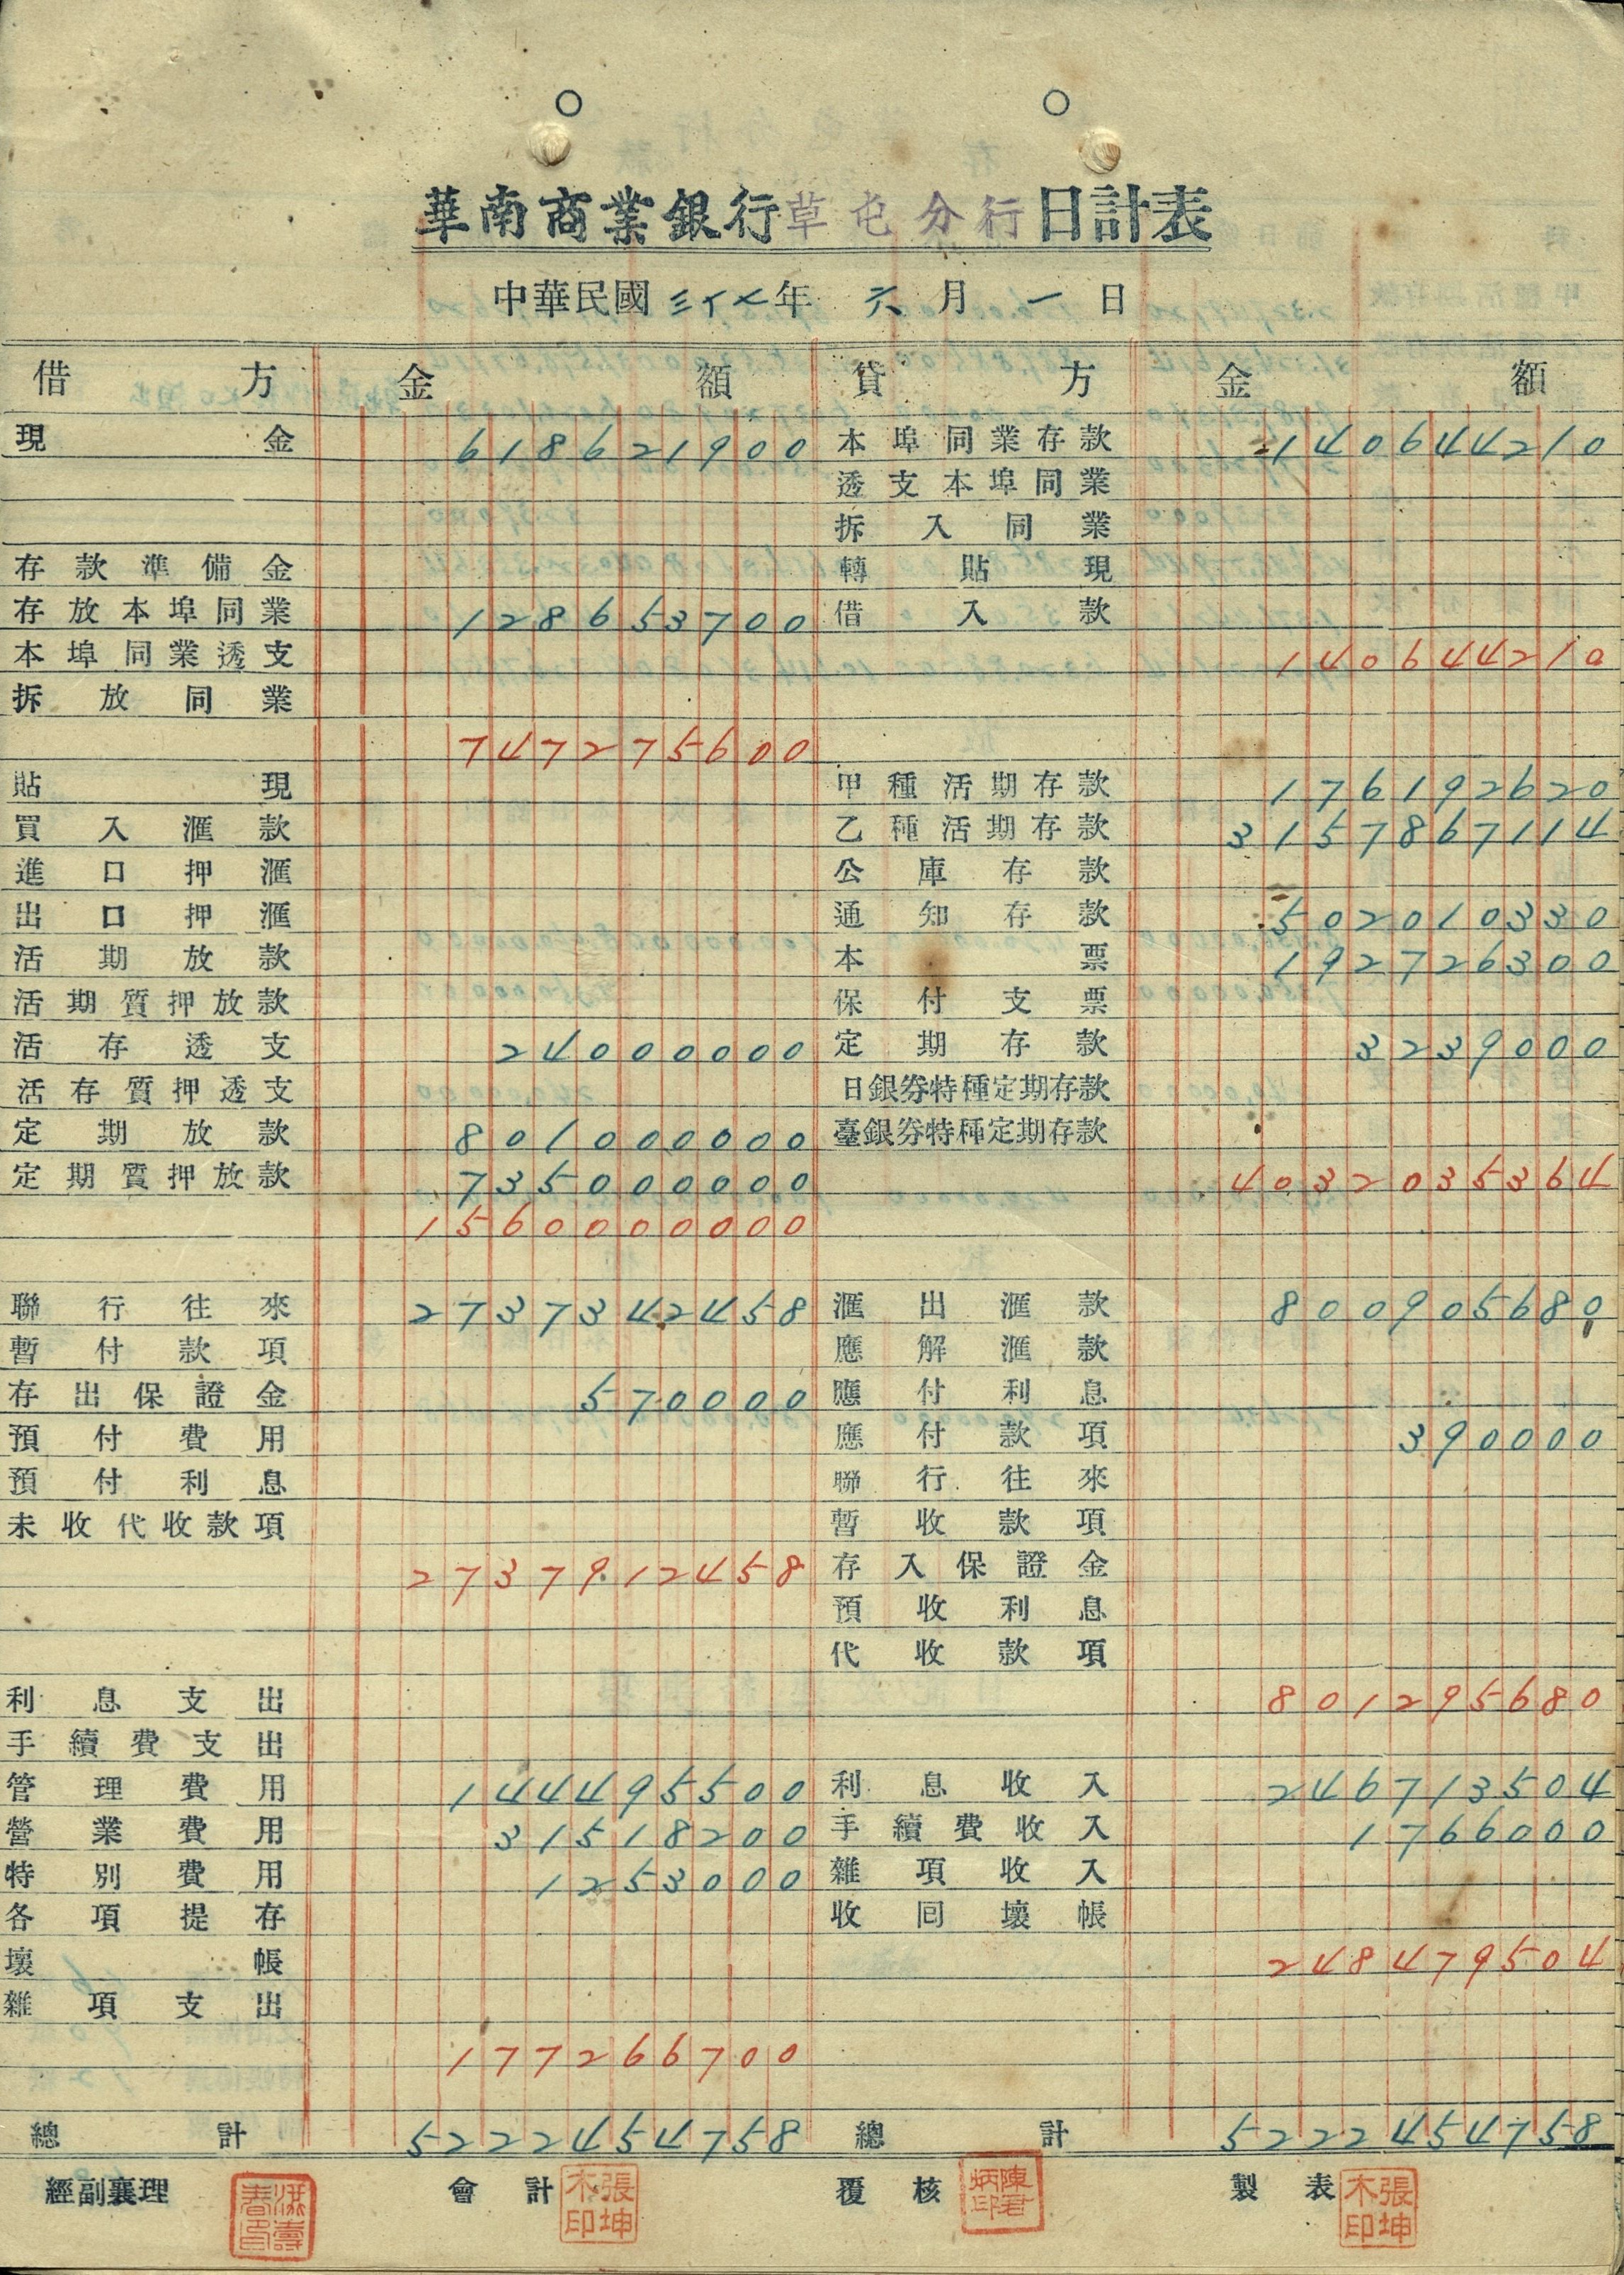 華南商業銀行草屯分行日計表
中華民國三十七年 六月一日
借方 金額 貸方 金額
現金 618621900 本埠同業存款 140644210
透支本埠同業
拆入同業
存款準備金 轉貼現
存放本埠同業 128653700 借入款
本埠同業透支 140644210
拆放同業
747275600
貼現 甲種活期存款 176192620
買入滙款 乙種活期存款 3157867114
進口押滙 公庫存款
出口押滙 通知存款 502010330
活期放款 本票 192726300
活期質押放款 保付支票
活存透支 24000000 定期存款 3239000
活存質押透支 日銀券特種定期存款
定期放款 801000000 臺銀券特種定期存款
定期質押放款 735000000 4032035364
1560000000
聯行往來 2737342458 滙出滙款 800905680
暫付款項 應解滙款
存出保證金 570000 應付利息
預付費用 應付款項 390000
預付利息 聯行往來
未收代收款項 暫收款項
2737912458 存入保證金
預收利息
代收款項
利息支出 801295680
手續費支出
管理費用 144495500 利息收入 246713504
營業費用 31518200 手續費收入 1766000
特別費用 1253000 雜項收入
各項提存 收回壞帳
壞帳 248479504
雜項支出
177266700
總計 5222454758 總計 5222454758
經副襄理 會計 張坤木印 覆核 陳君炳印 製表 張坤木印